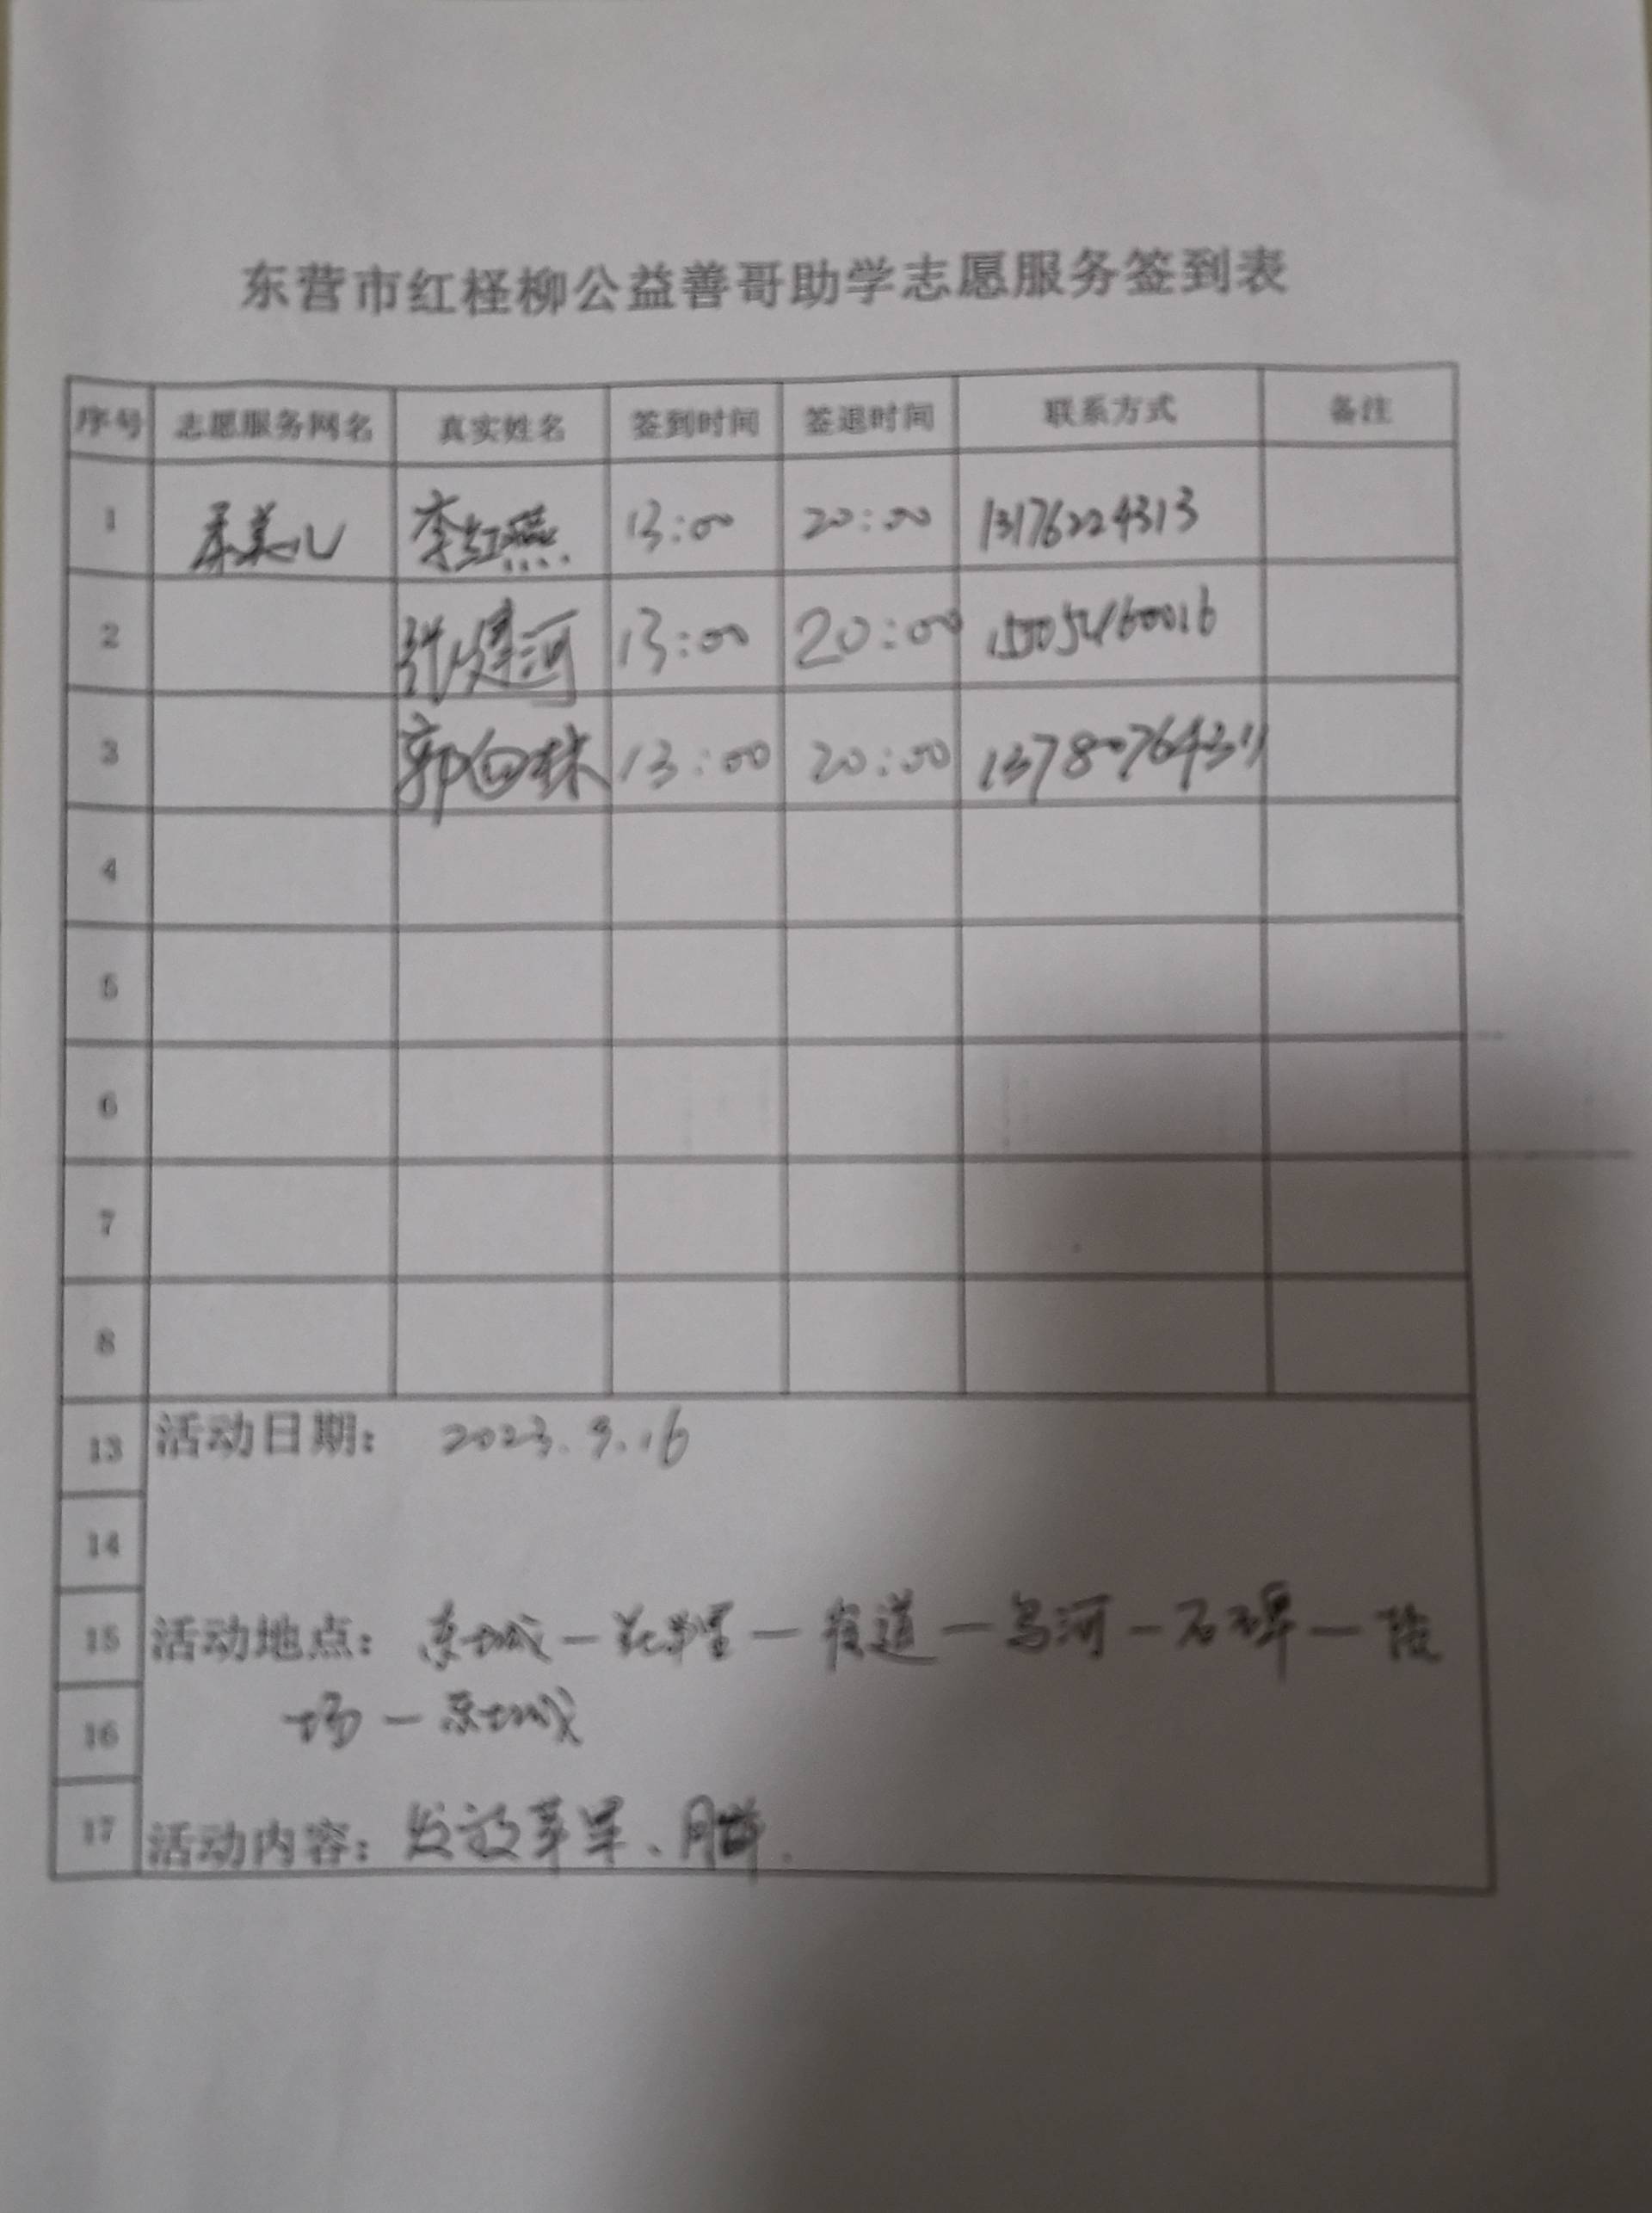 东营市红柽柳公益善哥助学志愿服务签到表
序号 志愿服务网名 真实姓名 签到时间 签退时间 联系方式 备注
1 李红燕 13:00 20:00 13176224313
2 张建河 13:00 20:00
3 郭向林 13:00 20:00 13780764311
4
5
6
7
8
13 活动日期: 2023.9.16
14
15 活动地点: 东城 — 街道 — 乌河 — 石碑 —
16 场 — 东城
17 活动内容: 发放苹果、月饼.